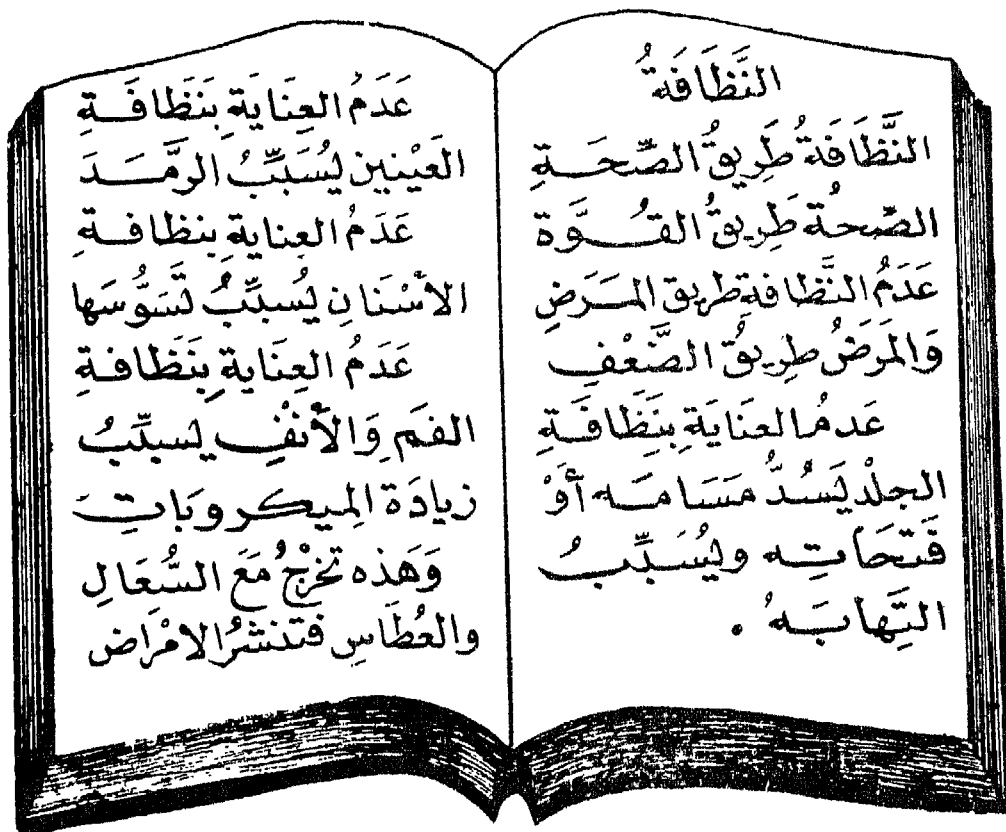 النَّظَافَةُ
النَّظَافَةُ طَرِيقُ الصِّحَـةِ
الصِّحةُ طَرِيقُ القُـوَّة
عَدَمُ النَّظافةِ طريق المَـرَضِ
وَالمَرَضُ طرِيقُ الضَّعْفِ
عَدمُ العنَايَةِ بِنَظَافَـةِ
الجلْد يَسُدُّ مَسَامَـه أوْ
فَتَحَاتِـه ويُسَبِّـبُ
التِهابَـهُ .
عَدَمُ العِنَايَةِ بِنَظَافَـةِ
العَيْنين يُسَبِّبُ الرَّمَـدَ
عَدَمُ العِنايةِ بِنظافـةِ
الأسْنَانِ يُسبِّبُ تَسَوُّسَها
عَدَمُ العِنَايةِ بِنَظَافةِ
الفَمِ وَالأنْفِ يسبِّبُ
زيادَة المِيكروبَاتِ
وَهَذه تَخرْجُ مَعَ السُّعَالِ
والعُطَاسِ فتَنشرُ الامْرَاض